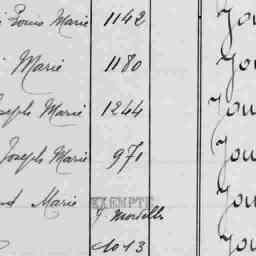 Louis Marie 1142 You
Marie 1180 You
Joseph Marie 1244 You
Joseph Marie 971 You
Marie EXEMPTÉ You
1013 You